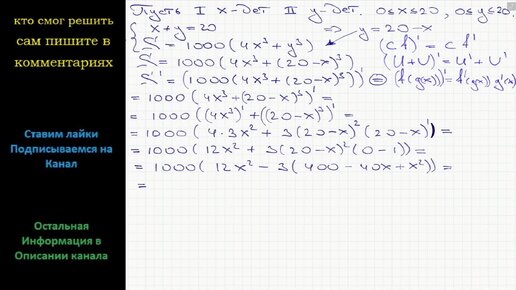 кто смог решить
сам пишите в
комментариях
Ставим лайки
Подписываемся на
Канал
Остальная
Информация в
Описании канала
Пусть I x-дет. II y-дет. 0≤x≤20, 0≤y≤20.
{ x+y=20 ⇒ y=20-x
S = 1000(4x³+y³) (cf)' = cf'
S = 1000(4x³+(20-x)³) (u+v)' = u'+v'
S' = (1000(4x³+(20-x)³))' = (f(g(x)))' = f'(g(x)) g'(x)
= 1000(4x³+(20-x)³)' =
= 1000((4x³)'+((20-x)³)') =
= 1000(4·3x²+3(20-x)²(20-x)') =
= 1000(12x²+3(20-x)²(0-1)) =
= 1000(12x²-3(400-40x+x²)) =
=